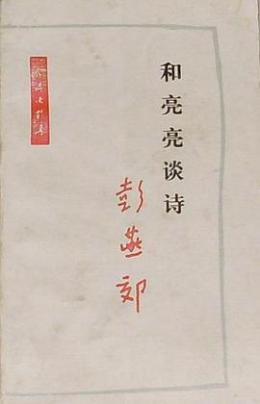 和亮亮谈诗
彭燕郊